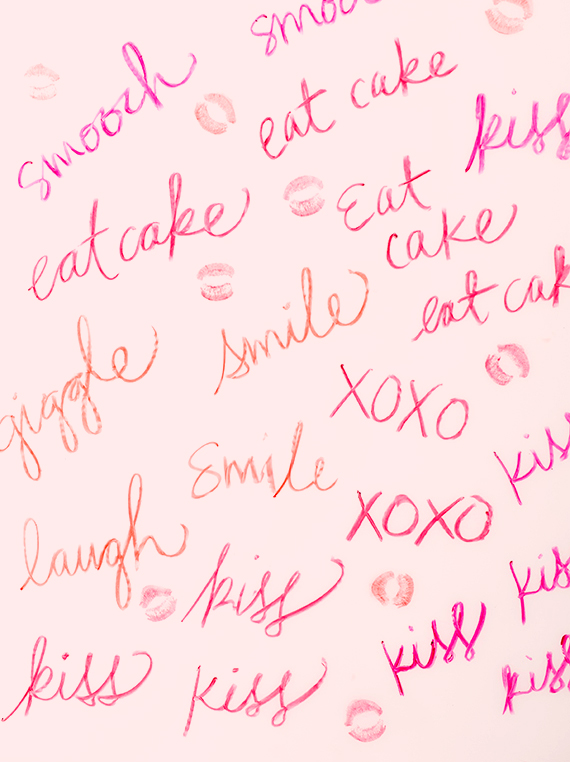 smooch
smooch
eat cake
kiss
eat cake
Eat
cake
eat cak
smile
giggle
XOXO
smile
kiss
XOXO
laugh
kiss
kiss
kiss
kiss
kiss
kiss